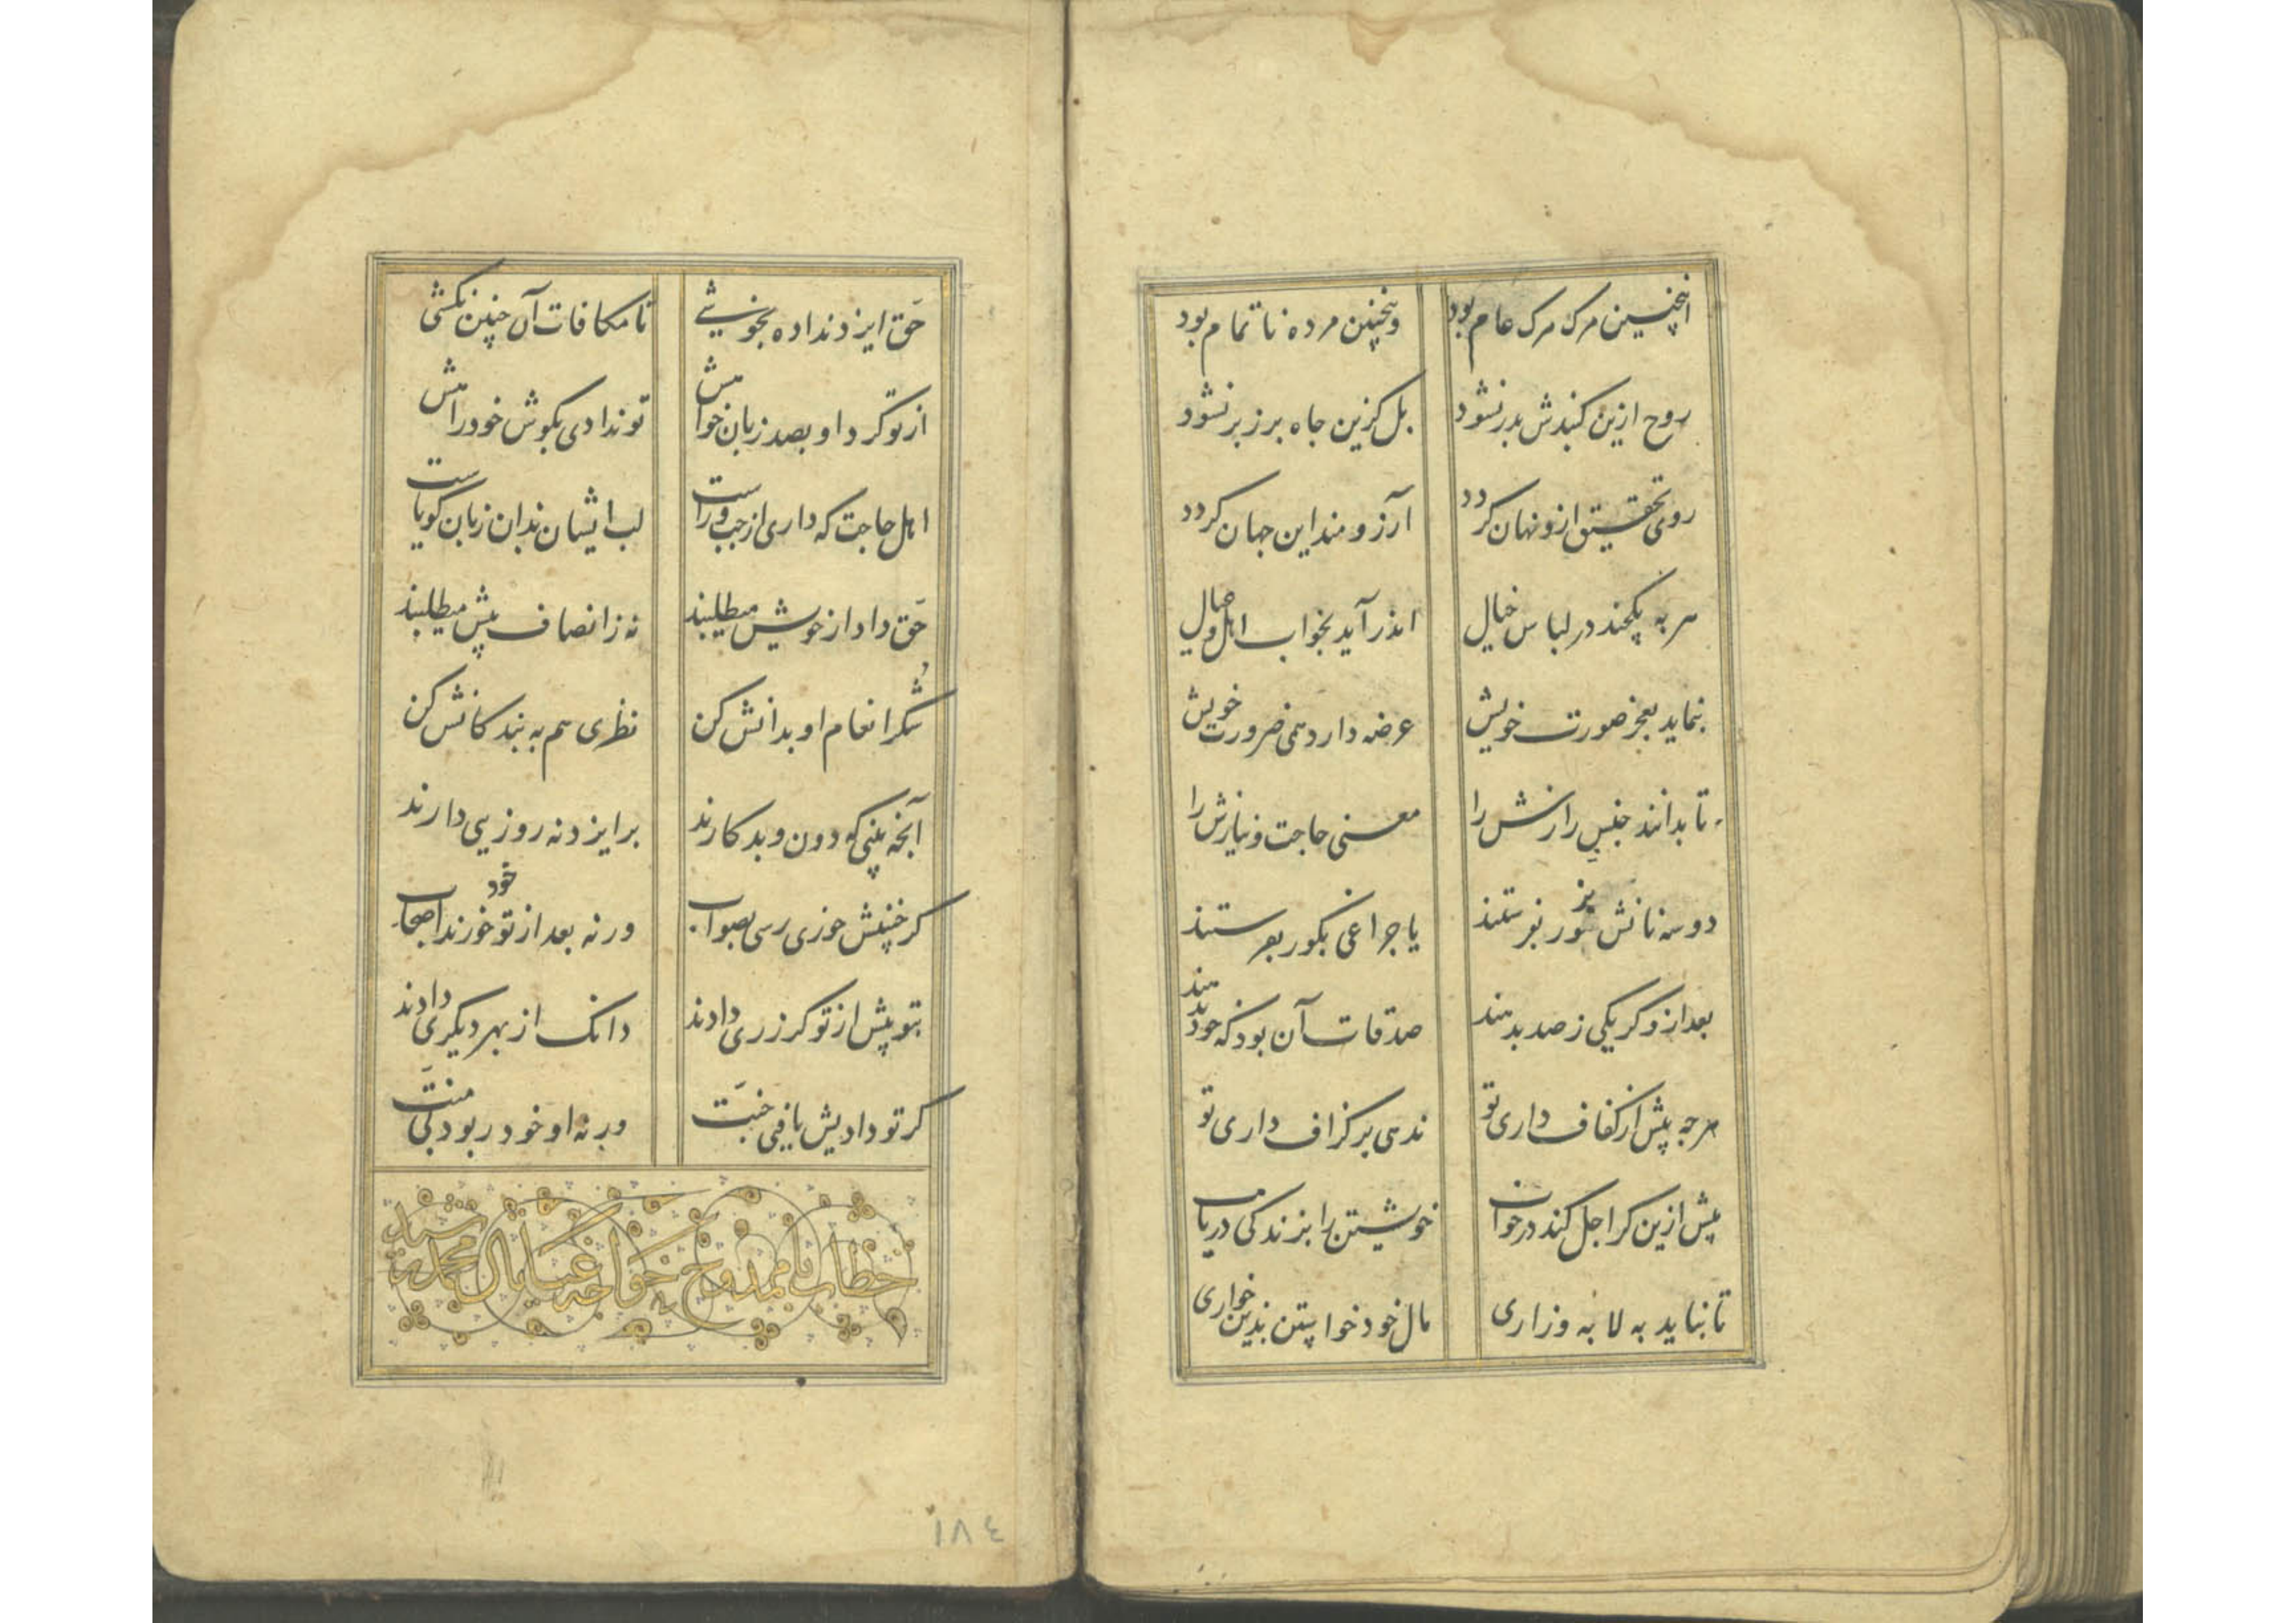 اینچنین مرک مرک عام بود وینچنین مرده ناتمام بود
روح ازین کنبدش بدر نشود بل کزین جاه برزبر نشود
روی تحقیق ازو نهان کردد آرزومند این جهان کردد
سربه پکحند در لباس خیال اندر آید بخواب اهل و عیال
بنماید بعجز صورت خویش عرضه دارد همی ضرورت خویش
تا بدانند جنس رازش را معنی حاجت و نیازش را
دوسه نانش بزور بفرستند یا چراغی بکور بفرستند
بعد ازو کر یکی ز صد بدهند صدقات آن بود که خود بدهند
هرجه پیش از کفاف داری تو ندهی بر کزاف داری تو
پیش ازین کر اجل کند در خواب خویشتن را بزندکی دریاب
تا نباید به لابه و زاری مال خود خواستن بدین خواری
حق ایزد نداده بخوشی تا مکافات آن چنین نکشی
از تو کرد او بصد زبان خواهش تو ندادی بکوش خود راهش
اهل حاجت که داری از چپ و راست لب ایشان بدان زبان کویاست
حق داد از خویش میطلبند نه ز انصاف پیش میطلبند
شکر انعام او بدانش کن نظری هم به بندکانش کن
آنچه بینی که دون و بدکارند بر ایزد نه روزیی دارند
کر خنیش خوری رسی بصواب ورنه بعد از تو خود خورند اصحاب
بتو پیش از تو کر زری دادند دانک از بهر دیکری دادند
کر تو دادیش یافی جنت ورنه او خود ربود بی منت
خطاب با ممدوح خواجه غیاث محمد رشید
١٨٤